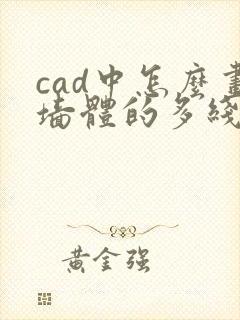 cad中怎麽畫
墙體的多綫
黃金强